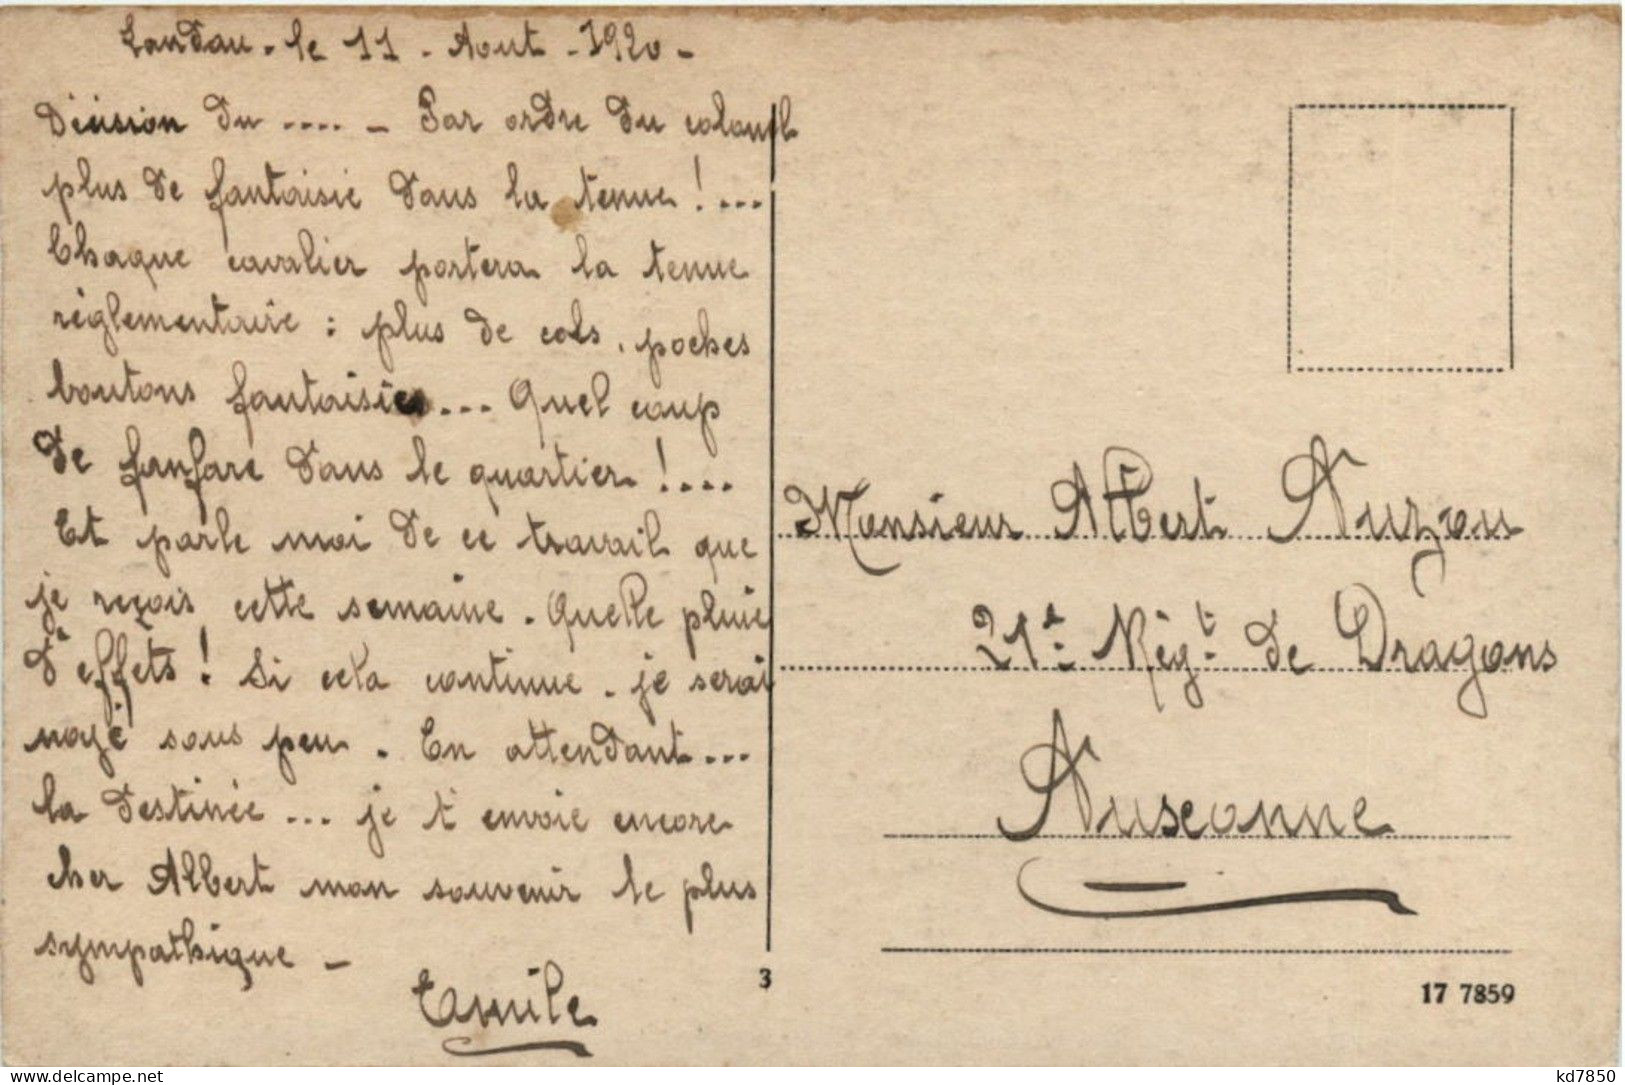 Landau - le 11 - Aout - 1920 -
Division du .... - Par ordre du colonel
plus de fantaisie dans la tenue !...
Chaque cavalier portera la tenue
règlementaire : plus de cols, poches
boutons fantaisies... Quel coup
de fanfare dans le quartier !....
Et parle moi de ce travail que
je reçois cette semaine. Quelle pluie
d'effets ! Si cela continue, je serai
noyé sous peu. En attendant...
la destinée ... je t'envoie encore
cher Albert mon souvenir le plus
sympathique -
Emile
Monsieur Albert Auzou
21e Régt. de Dragons
Auxonne
3
17 7859
kd7850